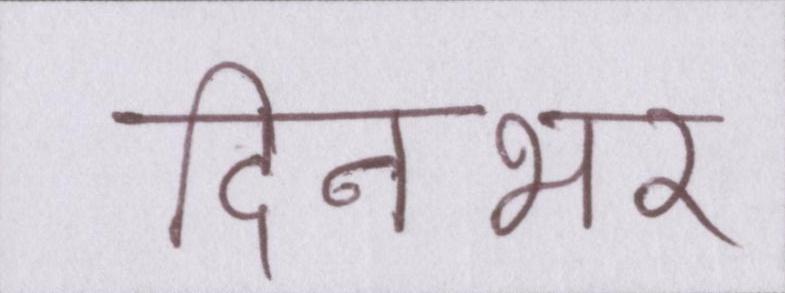 दिनभर